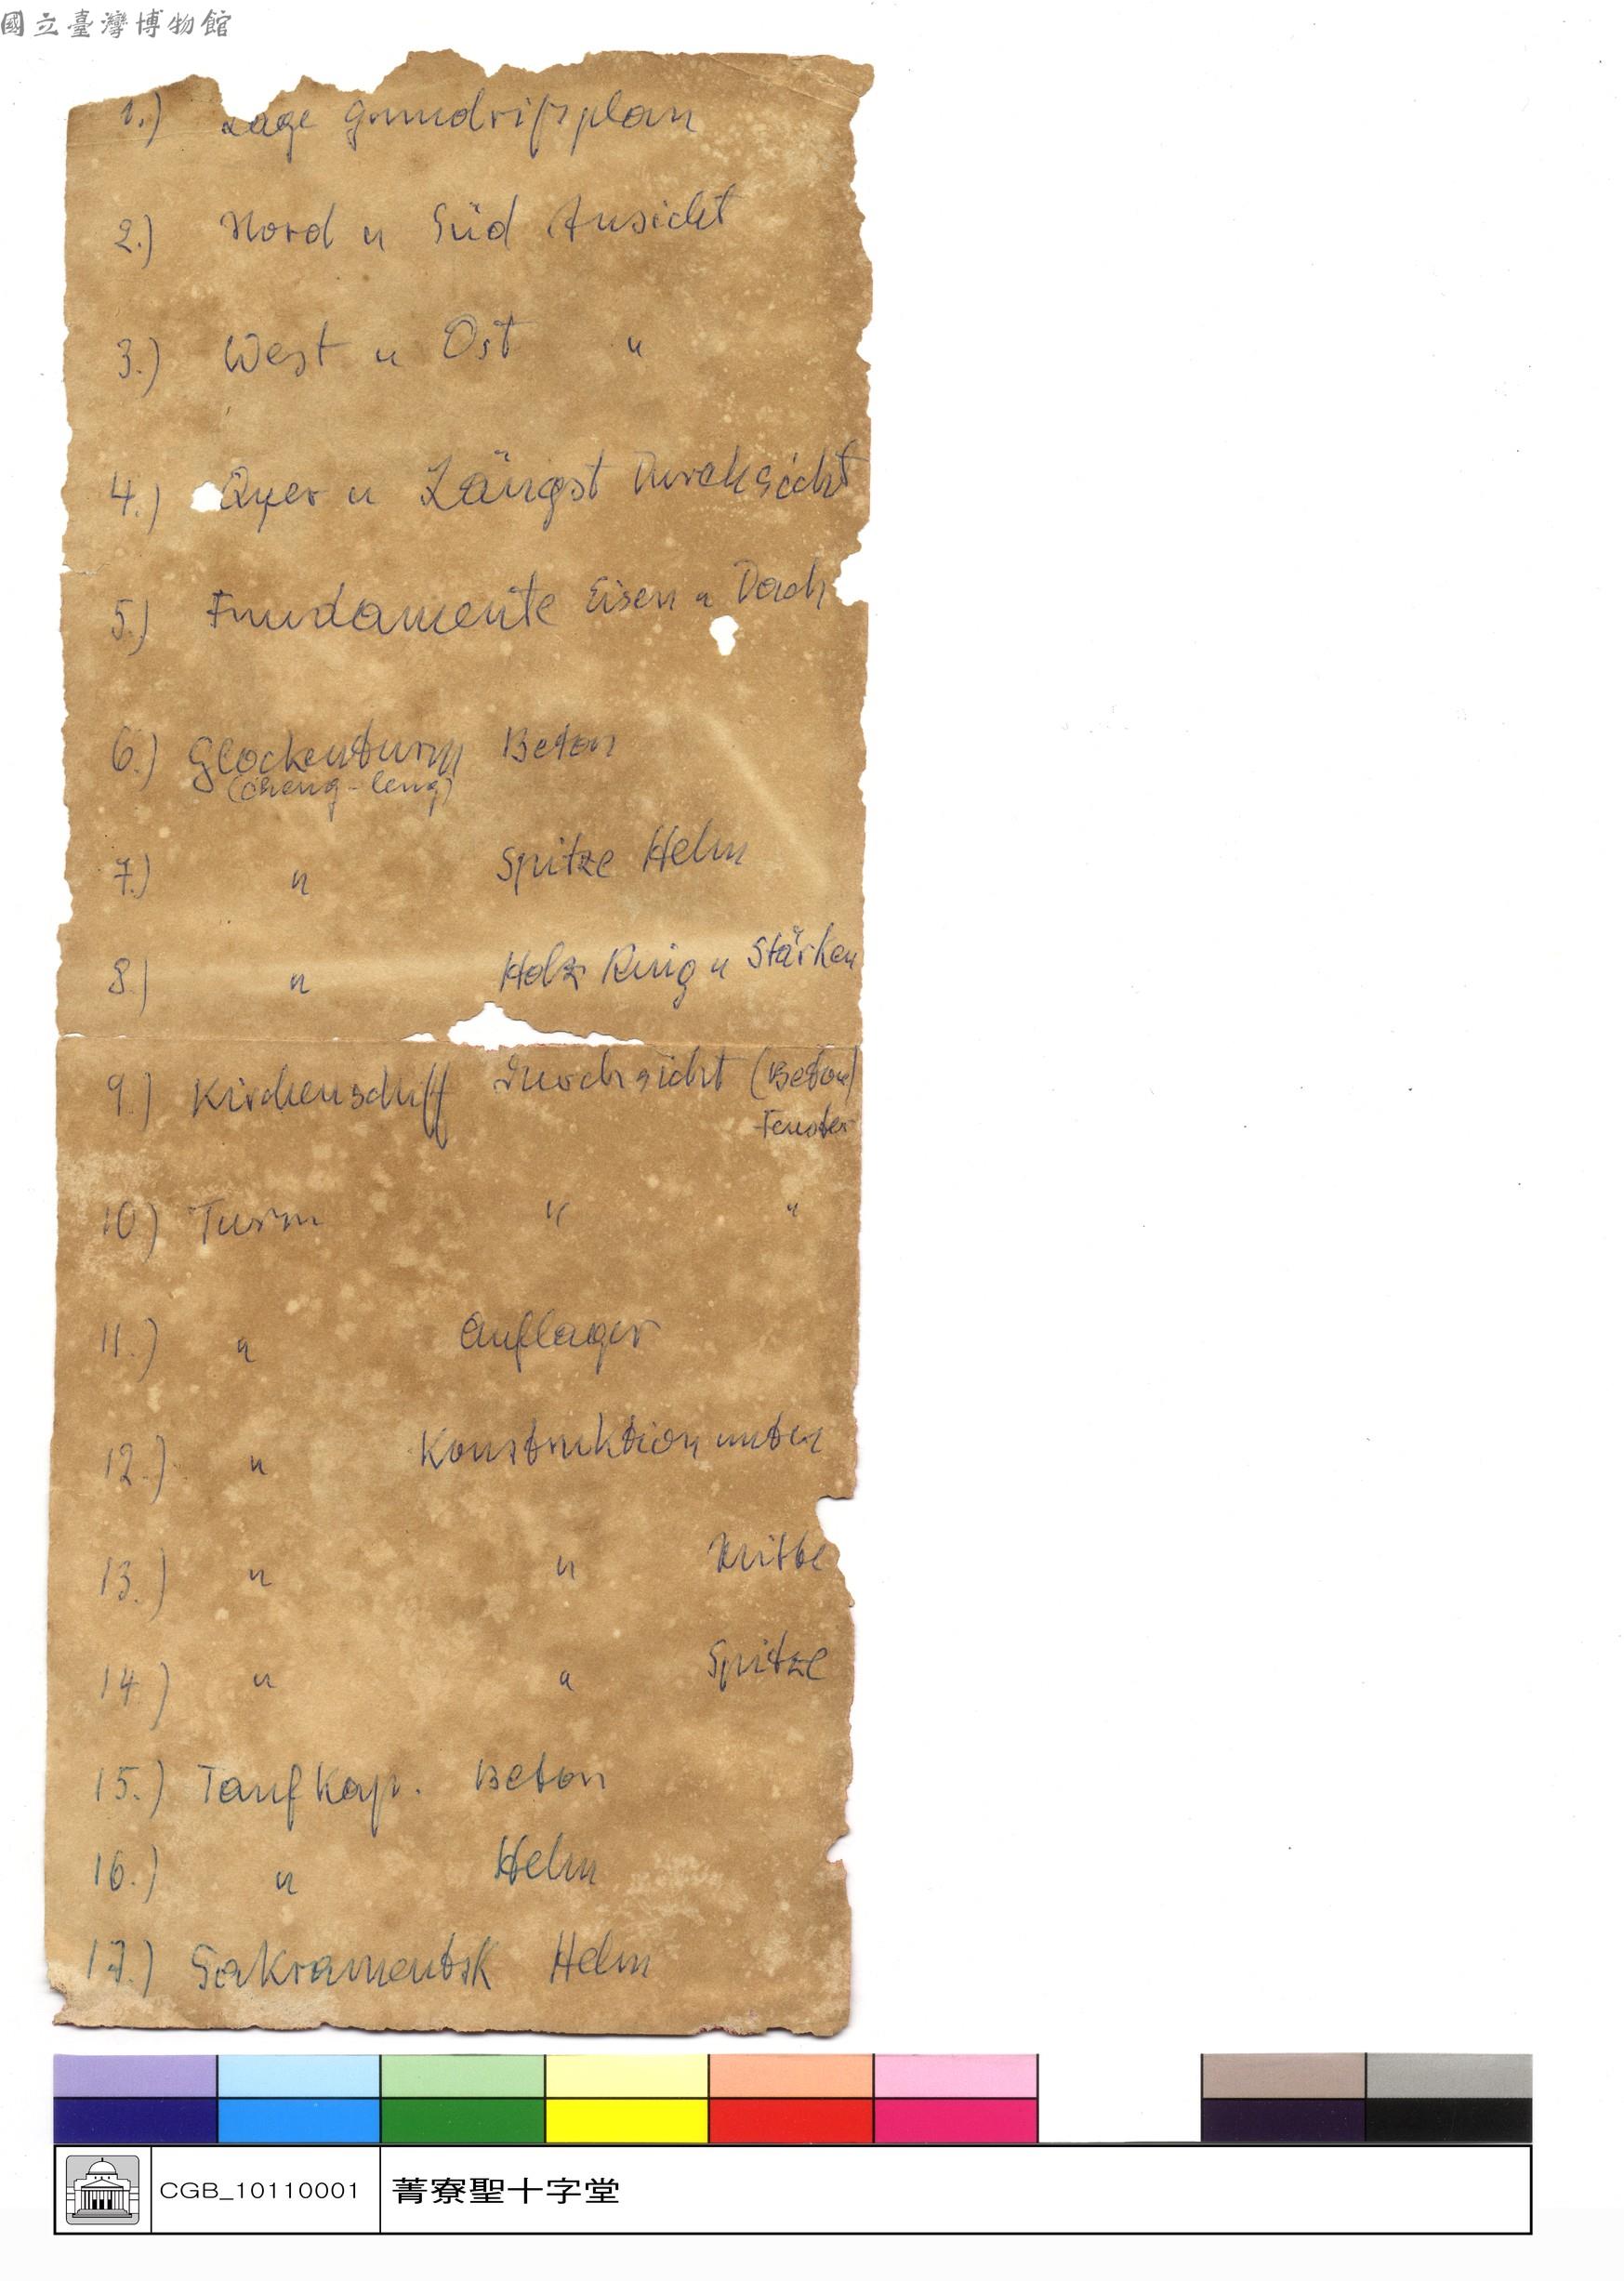 國立臺灣博物館
1.) Lage Grundrißplan
2.) Nord u Süd Ansicht
3.) West u Ost "
4.) Quer u Längst Durchsicht
5.) Fundamente Eisen u Dach
6.) Glockenturm Beton
(cheng-leng)
7.) " Spitze Helm
8.) " Holz Ring u Stärken
9.) Kirchenschiff Durchsicht (Beton)
Fenster
10.) Turm " "
11.) " Auflager
12.) " Konstruktion unten
13.) " " Mitte
14.) " " Spitze
15.) Taufkap. Beton
16.) " Helm
17.) Sakramentsk Helm
CGB_10110001 菁寮聖十字堂